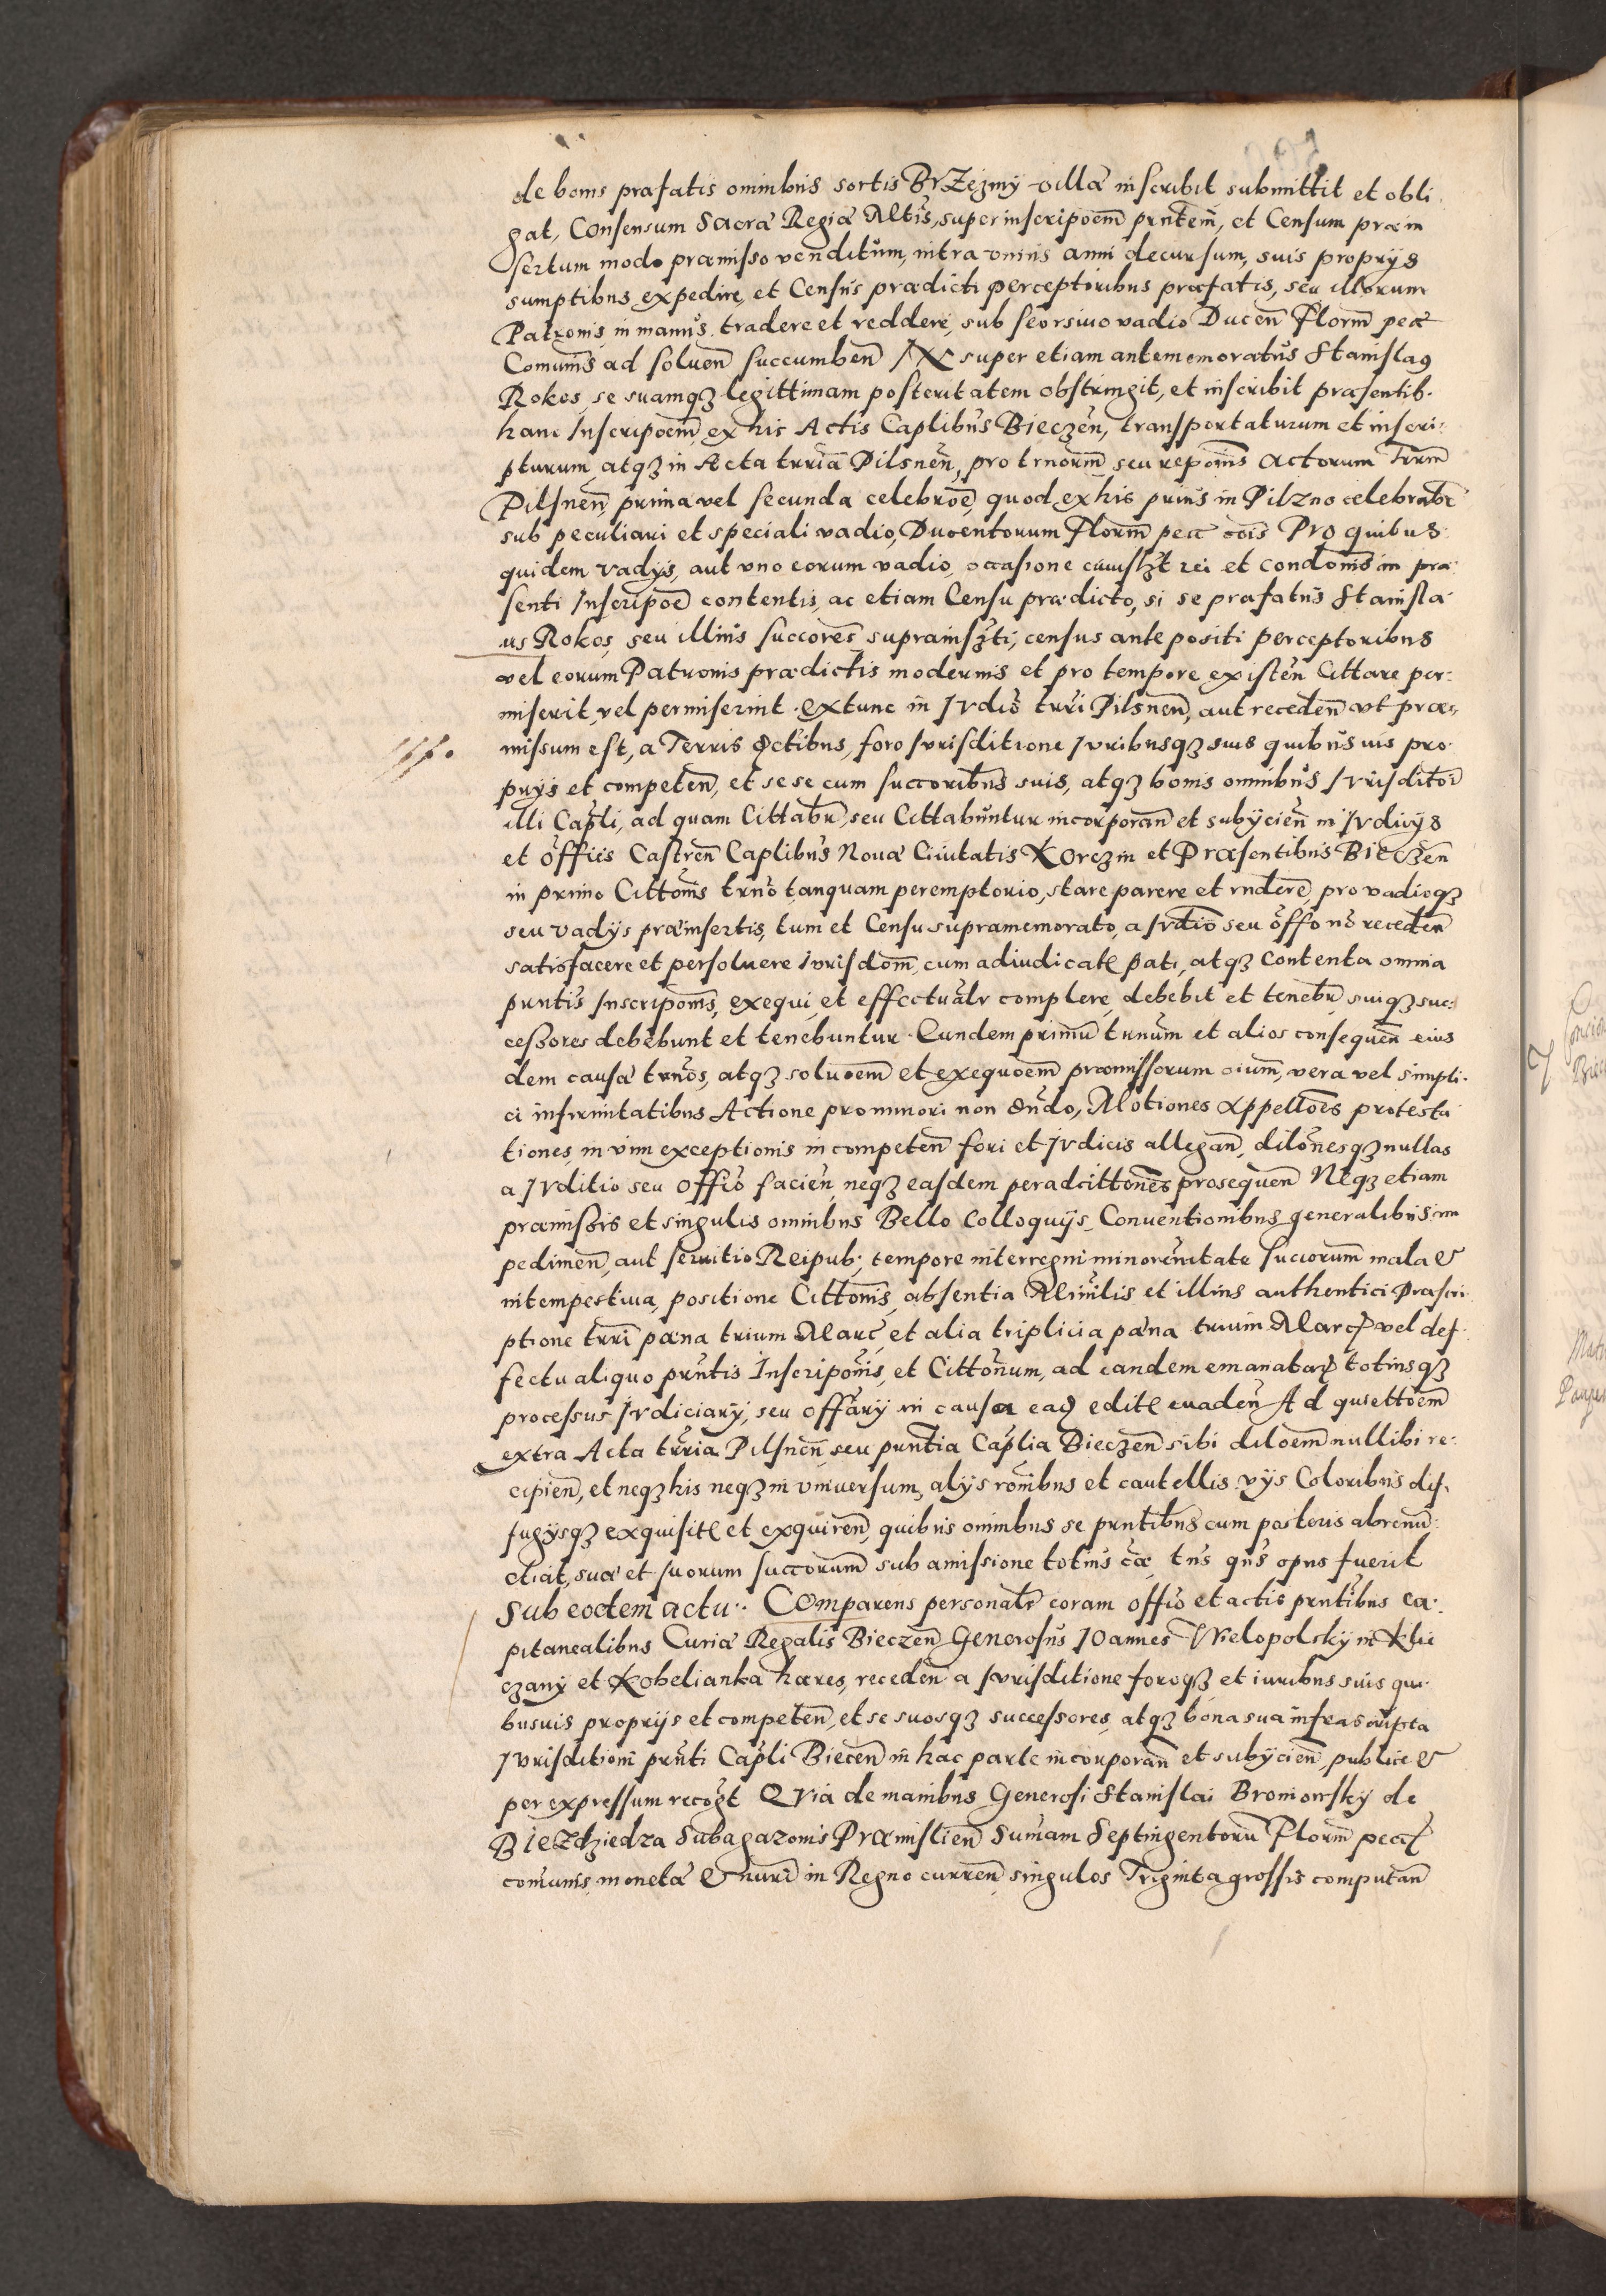 de bonis præfatis omnibus sortis BrZezmy villæ inscribit submittit et obli
gat, Consensum Sacræ Regiæ Mtis, super inscripoem pnntem, et Censum præin
sertum modo præmisso venditum, intra vnius anni decursum, suis proprijs
sumptibus expedire, et Census prædicti perceptoribus præfatis, seu illorum
Patronis, in manus tradere et reddere, sub seorsiuo vadio Ducen Florm pecæ
Comunis ad soluen succumben super etiam antememoratus Stanislaus
Rokos, se suamq3 legittimam posteritatem obstringit, et inscribit præsentib.
hanc Inscripoem ex his Actis Caplibus Bieczen, transportaturum et inscri:
pturum, atq3 in Acta trria Pilsnen, pro trnorm seu reponis Actorum Trrm
Pilsnen, prima vel secunda celebroe, quod ex his prius in Pilzno celebrabr
sub peculiari et speciali vadio, Ducentorum Florm pecæ cois Pro quibus
quidem vadijs, aut vno eorum vadio, occasione cuiuslzt rei et condonis in præ
senti Inscripoe contentis, ac etiam Censu prædicto, si se præfatus Stanisla
us Rokos, seu illius succores suprainszti, census ante positi perceptoribus
vel eorum Patronis prædictis modernis et pro tempore existen Cittare per:
miserit vel permiserint. Extunc in Ivdio trri Pilsnen, aut receden vt præ:
missum est, a Terris Dctibus, foro Ivrisditione Ivribusq3 suis quibusuis pro
prijs et competen, et sese cum succoribus suis, atq3 bonis omnibus Ivrisditoi
illi Capli, ad quam Cittabr, seu Cittabuntur incorporan et subijcien in Ivdicijs
et officis Castren Caplibus Nouæ Ciuitatis KOrczin et Præsentibus BIECZen
in primo Cittonis trno tanquam peremptorio, stare parere et rndere, pro vadioq3
seu vadijs præinsertis, tum et Censu supramemorato, a Ivdio seu offo no receden
satisfacere et persoluere Ivrisdom, cum adiudicate pati, atq3 contenta omnia
pnntis Inscriponis, exequi et effectualr complere, debebit et tenebr, suiq3 suc:
cessores debebunt et tenebuntur. Eundem primu trnum et alios consequen eius
dem causæ trnos, atq3 soluoem et exequoem præmissorum oium, vera vel simpli.
ci infirmitatibus Actione pro minori non Dndo, Motiones Appellōes protesta
tiones, in vim exceptionis incompeten fori et Ivdicis allegan, dilonesq3 nullas
a Ivditio seu Offio facien, neq3 easdem per adcittones prosequen Neq3 etiam
præmissis et singulis omnibus Bello Colloquijs, Conuentionibus generalibus im
pedimen, aut seruitio Reipub: tempore interregni minorennitate succorum mala &
intempestiua, positione Cittonis, absentia Mimilis et illius authentici Præscri
ptione trri pæna trium Marc, et alia triplicia pæna trium Marc vel def
fectu aliquo pnntis Inscriponis, et Cittonum, ad eandem emanatar totiusq3
processus Ivdiciarij, seu offarij in causa ead edite euaden Ad quiettoem
extra Acta trria Pilsnen seu pnntia Caplia Bieczen sibi diloem nullibi re:
cipien, et neq3 his neq3 in vniuersum, alijs ronibus et cautellis vijs Coloribus dif.
fugijsq3 exquisite et exquiren, quibus omnibus se pnntibus cum posteris abrenu:
ctiat, suæ et suorum succorum sub amissione totius cæ, tns qns opus fuerit
Sub eodem actu. Comparens personalr coram offio et actis pnntibus Ca:
pitanealibus Curiæ Regalis Bieczen Generosus IOannes Wielopolskÿ in Klie
czanÿ et Kobelianka hæres, receden a Ivrisditione foroq3 et iuribus suis qui
busuis proprijs et competen, et se suosq3 successores, atq3 bona sua infrascripta
Ivrisditioni pnnti Capli Biecen in hac parte incorporan et subijcien, publice &
per expressum recogt QVia de manibus Generosi Stanislai Broniowskÿ de
BIEZdziedza Subagazonis Præmislien Sumam Septingentoru Florm pecæ
comunis monetæ & nuri in Regno curren singulos Triginta grossis computan